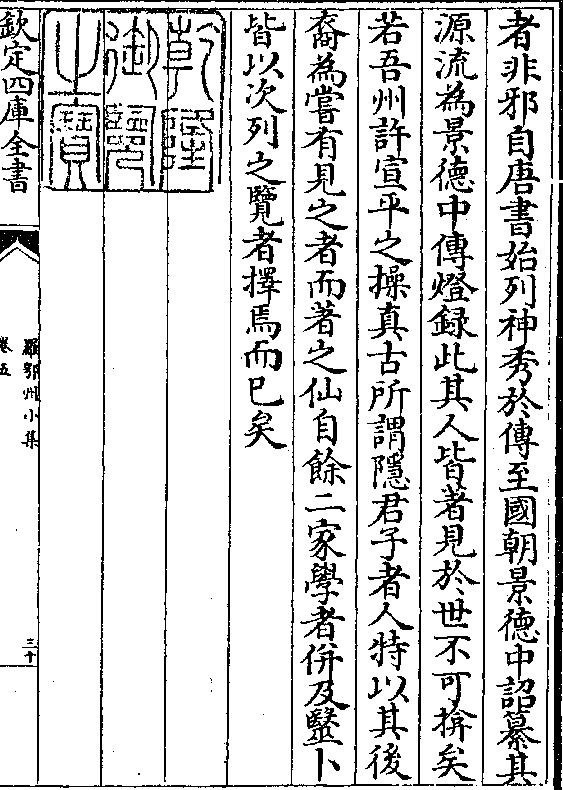 者非邪自唐書始列神秀於傳至國朝景德中詔纂其
源流為景德中傳燈録此其人皆著見於世不可揜矣
若吾州許宣平之操真古所謂隱君子者人特以其後
裔為嘗有見之者而著之仙自餘二家學者併及毉卜
皆以次列之覽者擇焉而已矣
乾隆
御覽
之寶
欽定四庫全書
羅鄂州小集
卷五
三十